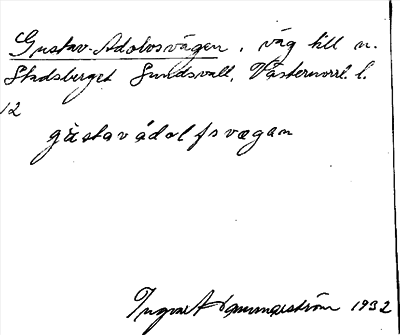 Gustav-Adolvsvägen, väg till n.
Stadsberget Sundsvall, Västernorrl. l.
12
gùstavádolfsvægan
Ingvar Hammarström 1932